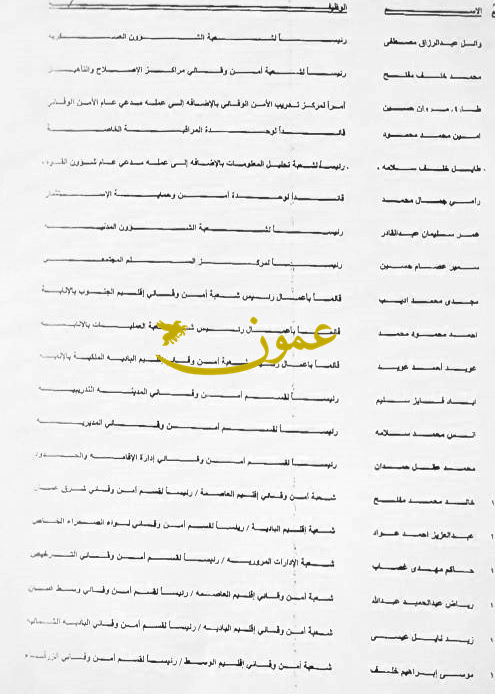 الاسم الوظيفة
وائل عبدالرزاق مصطفى رئيساً لشعبة الشؤون العسكرية
محمد خلف مفلح رئيساً لشعبة أمن وقائي مراكز الإصلاح والتأهيل
طارق مروان حسين أمراً لمركز تدريب الأمن الوقائي بالإضافه إلى عمله مدعي عام الأمن الوقائي
امين محمد محمود قائداً لوحدة المراقبة الخاصة
طايل خلف سلامه رئيساً لشعبة تحليل المعلومات بالإضافه إلى عمله مدعي عام شؤون القوة
رامي جمال محمد قائداً لوحدة أمن وحماية الإستثمار
عمر سليمان عبدالقادر رئيساً لشعبة الشؤون المدنيه
سمير عصام حسين رئيساً لمركز السلم المجتمعي
مجدي محمد اديب قائماً بأعمال رئيس شعبة أمن وقائي إقليم الجنوب بالإنابة
احمد محمود محمد قائماً بأعمال رئيس شعبة العمليات بالإنابه
عويد أحمد عويد قائماً بأعمال رئيس شعبة أمن وقائي إقليم الباديه الملكية بالإنابه
اياد فايز سليم رئيساً لقسم أمن وقائي المدينه التدريبيه
انس محمد سلامه رئيساً لقسم أمن وقائي المديريه
محمد عقل حمدان رئيساً لقسم أمن وقائي إدارة الإقامه والحدود
خالد محمد مفلح شعبة أمن وقائي إقليم العاصمة / رئيساً لقسم أمن وقائي شرق عمان
عبدالعزيز احمد عواد شعبة إقليم البادية / رئيساً لقسم أمن وقائي لواء الصحراء الخاص
حاكم مهدي غصاب شعبة الإدارات المروريه / رئيساً لقسم أمن وقائي الترخيص
رياض عبدالحميد عبدالله شعبة أمن وقائي إقليم العاصمه / رئيساً لقسم أمن وقائي وسط عمان
زيد نايل عيسى شعبة أمن وقائي إقليم الباديه / رئيساً لقسم أمن وقائي الباديه الشماليه
موسى إبراهيم خلف شعبة أمن وقائي إقليم الوسط / رئيساً لقسم أمن وقائي الزرقاء
عمون